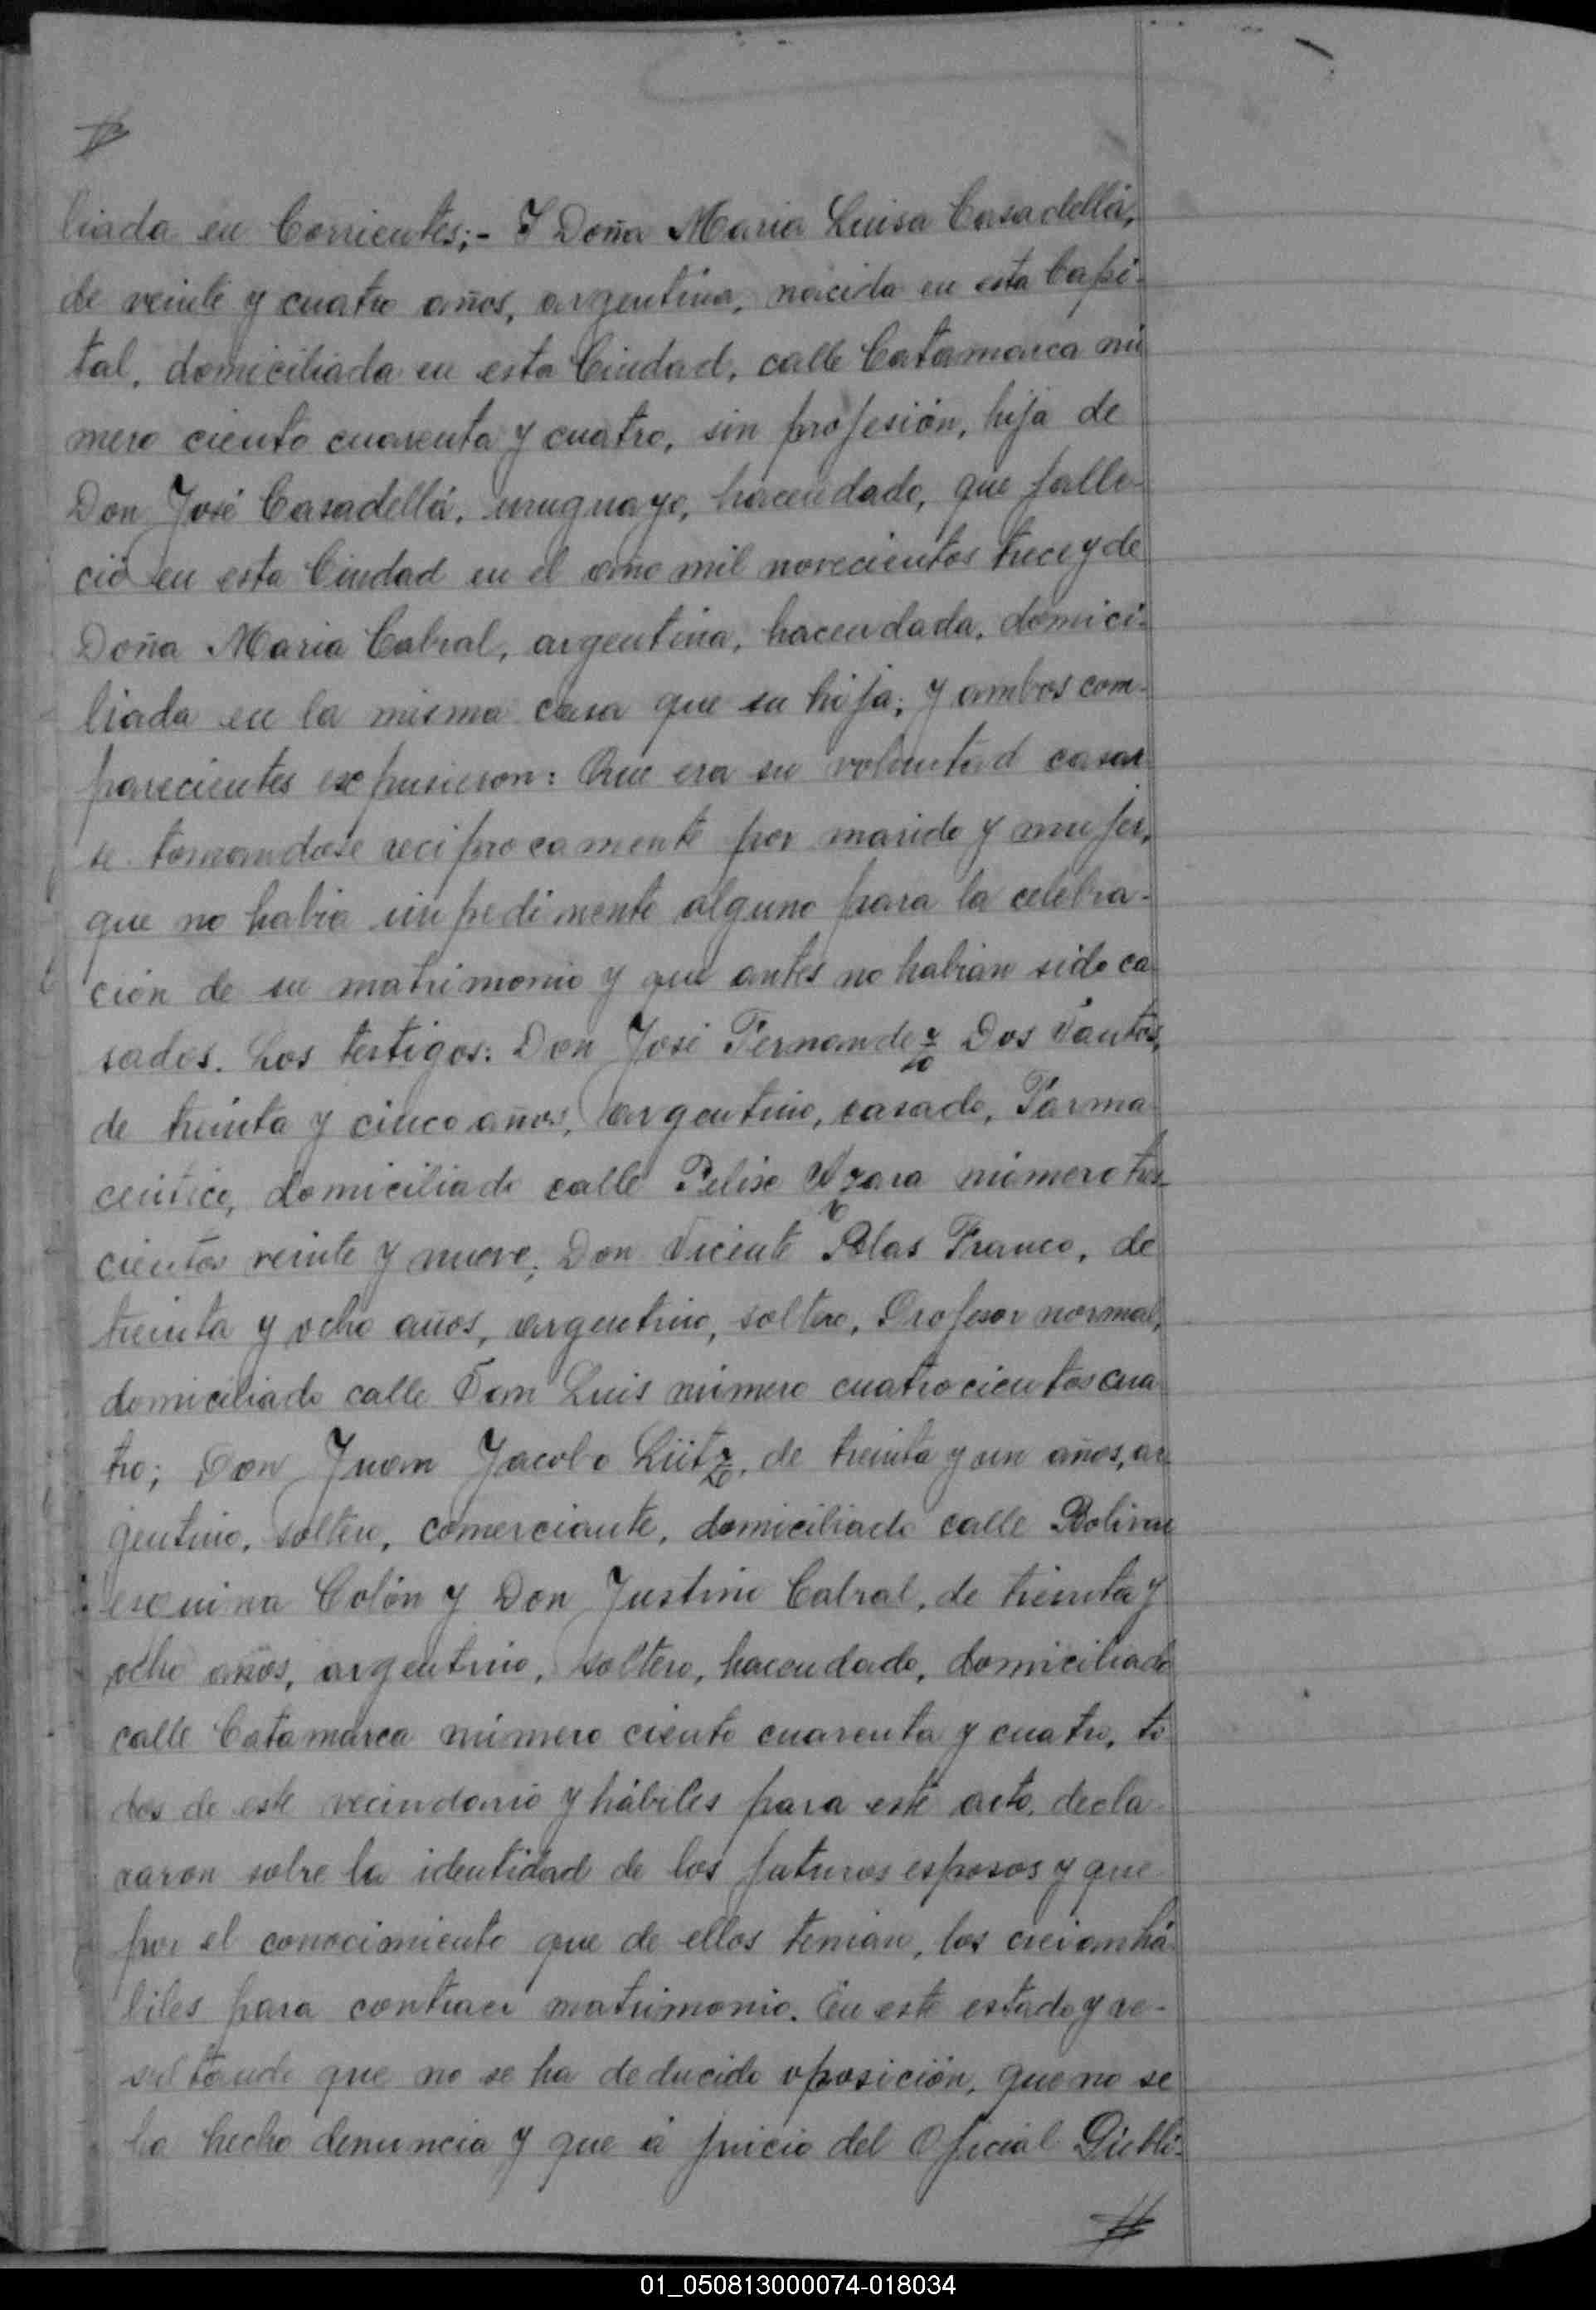 #
liada en Corrientes;- Y Doña Maria Luisa Casadellá,
de veinte y cuatro años, argentina, nacida en esta Capi-
tal, domiciliada en esta Ciudad, calle Catamarca nú
mero ciento cuarenta y cuatro, sin profesión, hija de
Don José Casadellá, uruguayo, hacendado, que falle-
ció en esta Ciudad en el año mil novecientos trece y de
Doña Maria Cabral, argentina, hacendada, domici-
liada en la misma casa que su hija; y ambos com-
parecientes expusieron: Que era su voluntad casar
se tomandose reciprocamente por marido y mujer,
que no habia impedimento alguno para la celebra-
ción de su matrimonio y que antes no habian sido ca
sados. Los testigos: Don José Fernandez Dos Santos,
de treinta y cinco años, argentino, casado, Farma
ceutico, domiciliado calle Felix Azara número tres-
cientos veinte y nueve; Don Vicente Blas Franco, de
treinta y ocho años, argentino, soltero, Profesor normal,
domiciliado calle San Luis número cuatrocientos cua
tro; Don Juan Jacobo Lütz, de treinta y un años, ar
gentino, soltero, comerciante, domiciliado calle Bolivar
esquina Colón y Don Justino Cabral, de treinta y
ocho años, argentino, soltero, hacendado, domiciliado
calle Catamarca número ciento cuarenta y cuatro, to
dos de este vecindario y hábiles para este acto, decla
raron sobre la identidad de los futuros esposos y que
por el conocimiento que de ellos tenian, los creian há
biles para contraer matrimonio. En este estado y re-
sultando que no se ha deducido oposición, que no se
ha hecho denuncia y que á juicio del Oficial Públi-
#
01_050813000074-018034